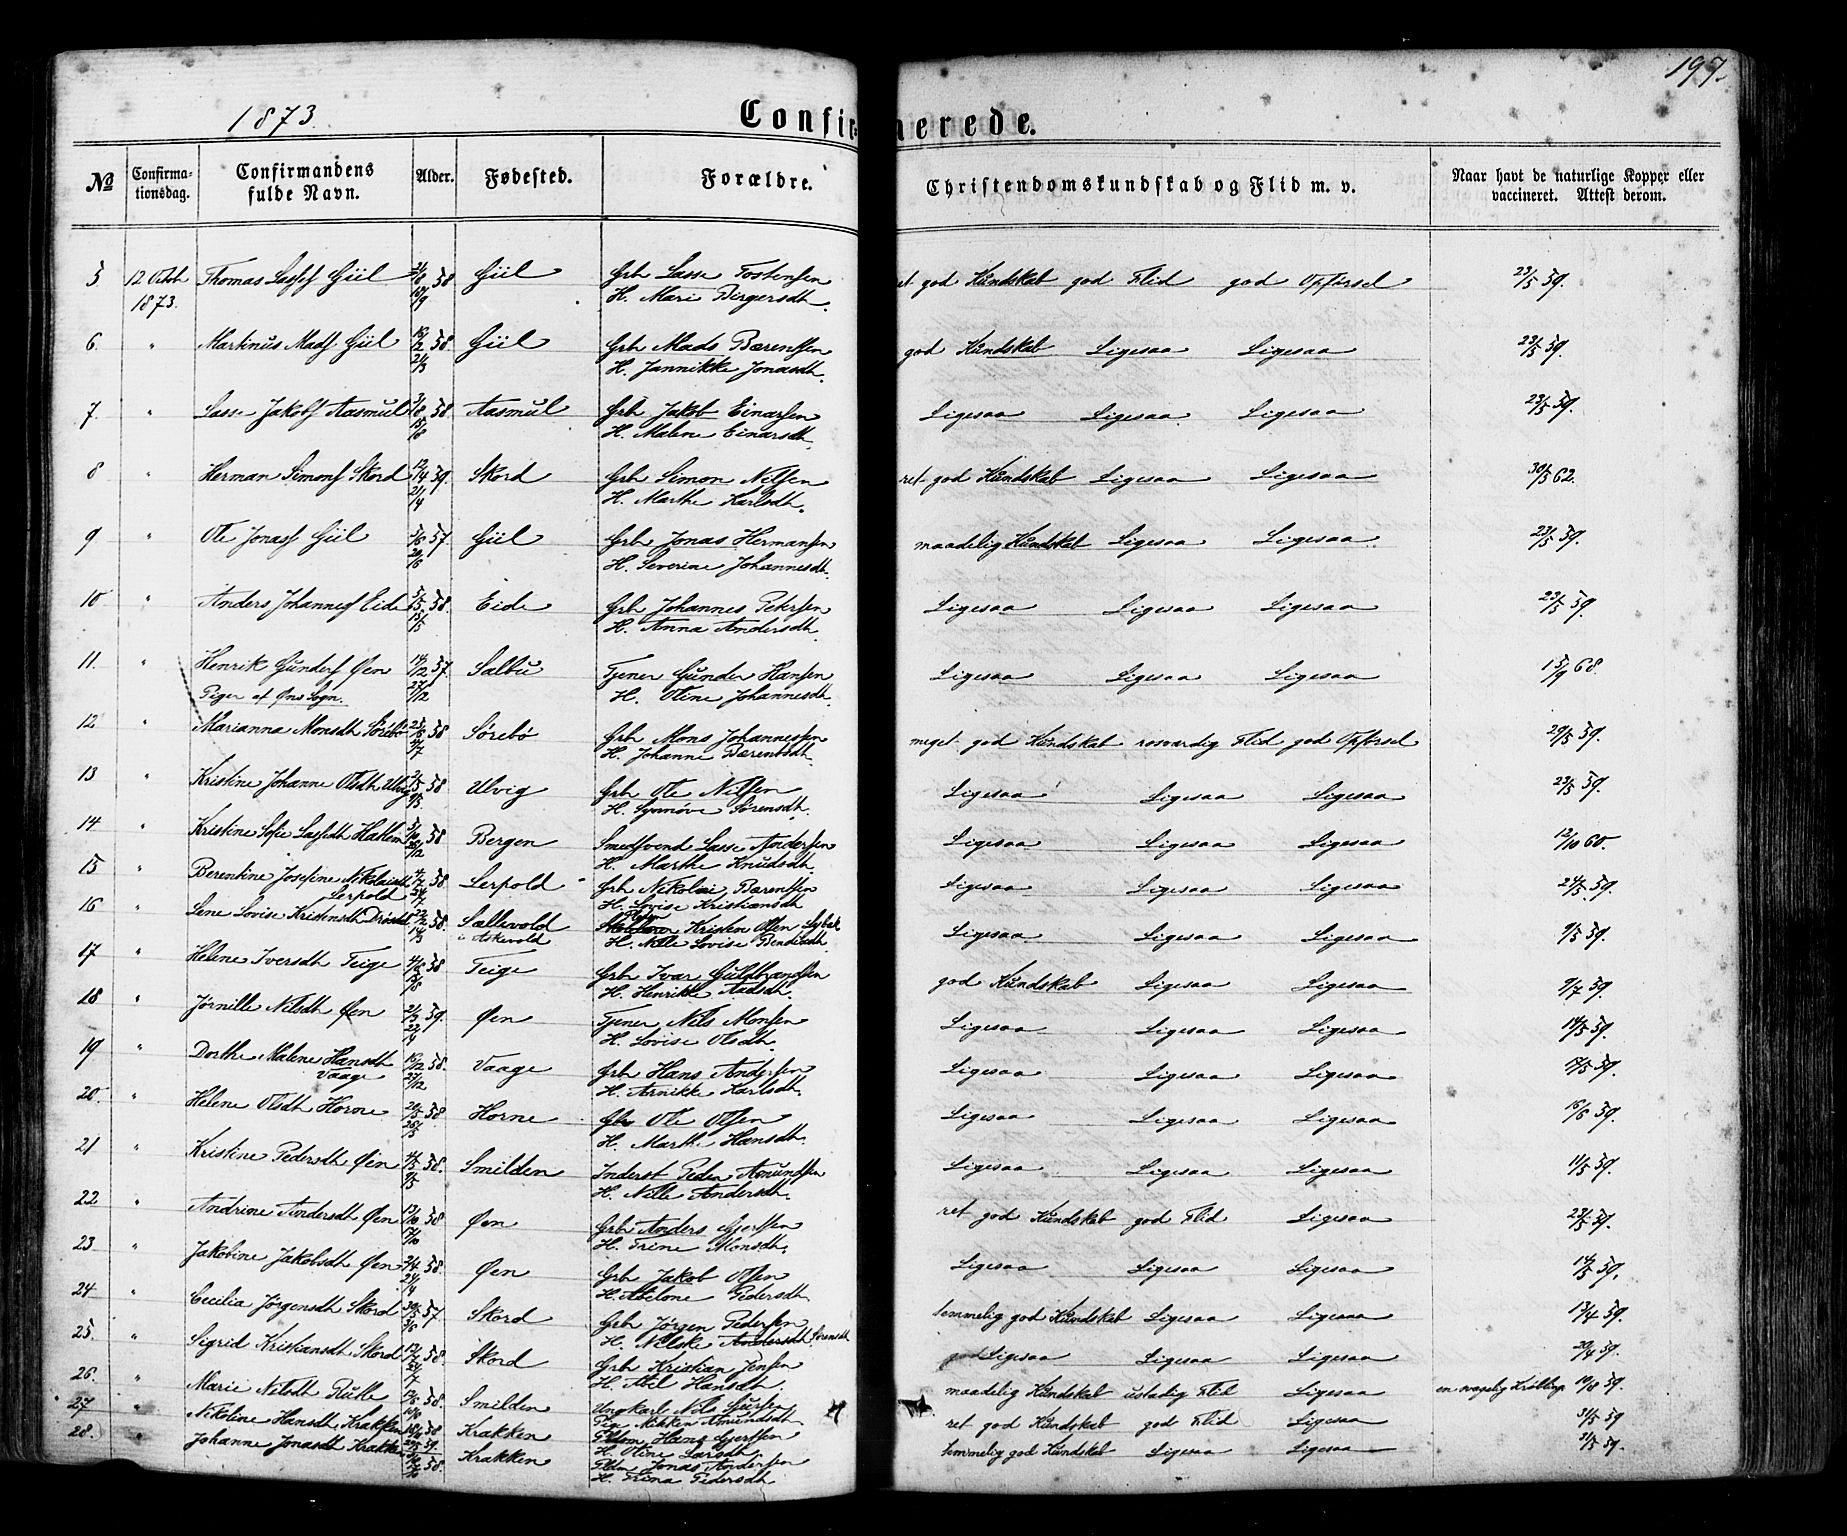 197.
1873. Confirmerede.
No Confirmationsdag. Confirmandens fulde Navn. Alder. Fødested. Forældre. Christendomskundskab og Flid m. v. Naar havt de naturlige Kopper eller vaccineret. Attest derom.
5 12 Octob 1873. Thomas Lassesf Giil 58 Giil Grb Lasse Tostensen ret god Kundskab god Flid god Opførsel 23/5 59.
H. Mari Birgersdt.
6. " Martinus Madsf Giil 58 Giil Grb Mads Berentsen god Kundskab Ligesaa Ligesaa 23/5 59.
H. Jannikke Jonasdt.
7. " Lasse Jakobsf Aasmul 58 Aasmul Grb Jakob Einarsen Ligesaa Ligesaa Ligesaa 23/5 59.
H. Malene Einarsdt.
8 " Herman Simonsf Skord 12/4 59. Skord Grb Simon Nilsen ret god Kundskab Ligesaa Ligesaa 30/5 62.
H. Marthe Karlsdt.
9 " Ole Jonasf Giil 57 Giil Grb Jonas Hermansen maadelig Kundskab Ligesaa Ligesaa 23/5 59.
H. Severine Johannesdt.
10 " Anders Johannesf Eide 58. Eide Grb Johannes Petersen Ligesaa Ligesaa Ligesaa 23/5 59.
H. Anna Andersdt.
11. " Henrik Gundersf Øen 14/12 57. Salbu Tjener Gunder Hansen Ligesaa Ligesaa Ligesaa 15/9 68.
Piger af Øns Sogn. 27/12 H. Oline Johannesdt.
12 " Marianna Monsdt Sørebø 58 Sørebø Grb Mons Johannessen meget god Kundskab rosværdig Flid god Opførsel 59.
H. Johanne Berentsdt.
13 " Kristine Johanne Olsdt Ulvig 58 Ulvig Grb Ole Nilsen Ligesaa Ligesaa Ligesaa 23/5 59.
H. Synnøve Sørensdt.
14 " Kristine Sofie Lassesdt Hatlem 58 Bergen Smedsvend Lasse Andersen Ligesaa Ligesaa Ligesaa 12/10 60.
H. Marthe Knudsdt.
15 " Berentine Josefine Nikolaisdt 58. Lerpold Grb Nikolai Berentsen Ligesaa Ligesaa Ligesaa 24/5 59.
Lerpold H. Lovise Kristiansdt
16 " Lene Lovise Kristensdt 58. Sællevold Kristen Olsen Ligesaa Ligesaa Ligesaa 9/5 59.
i Askevold H. Nille Lovise Bendixdt
17 " Helene Iversdt Teige 58 Teige Grb Ivar Guldbrandsen god Kundskab Ligesaa Ligesaa 9/7 59.
H. Henrikke Aadsdt.
18 " Jørnille Nilsdt Øen 59. Øen Tjener Nils Monsen Ligesaa Ligesaa Ligesaa 14/5 59.
H. Lovise Olsdt.
19 " Dorthe Malene Hansdt 58. Vaage Grb Hans Andersen Ligesaa Ligesaa Ligesaa 17/5 59.
Vaage 27/12 H. Arnikke Karlsdt.
20. " Helene Olsdt Horne 58 Horne Grb Ole Olsen Ligesaa Ligesaa Ligesaa 16/6 59.
H. Marthe Hansdt.
21 " Kristine Pedersdt Øen 58. Smilden Inderst Peder Amundsen Ligesaa Ligesaa Ligesaa 11/5 59.
H. Nille Andersdt.
22 " Andrine Andersdt Øen 13/10 58 Øen Grb Anders Gjertsen ret god Kundskab god Flid Ligesaa 23/5 59.
17/10 H. Trine Monsdt.
23 " Jakobine Jakobsdt Øen 58. Øen Grb Jakob Olsen Ligesaa Ligesaa Ligesaa 14/5 59.
24/4 H. Abelone Pedersdt
24 " Cecilia Jørgensdt Skord 57 Skord Grb Jørgen Pedersen temmelig god Kundskab Ligesaa Ligesaa 13/4 59.
H. Nilske Andersdt Sørensdt
25. " Sigrid Kristiansdt Skord 58 Skord Grb Kristian Jensen god Ligesaa Ligesaa Ligesaa 59.
H. Abel Hansdt.
26. " Marie Nilsdt 58. Smilden Ungkarl Nils maadelig Kundskab ustadig Flid Ligesaa en svagelig Krøbling 19/8 59.
Pige Nikken Amundsdt
27 " Nikoline Hansdt Krakken 58 Krakken Hans Gjertsen ret god Kundskab god Flid Ligesaa 31/5 59
H. Oline Larsdt.
28. " Johanne Jonasdt Krakken 58. Krakken Jonas Andersen temmelig god Kundskab Ligesaa Ligesaa 31/5 59.
H. Trina Pedersdt.